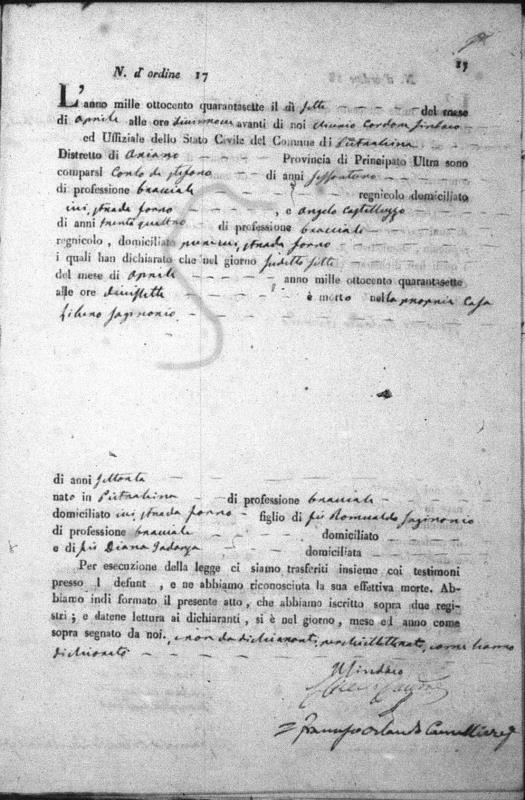 19
N. d' ordine 17
L'anno mille ottocento quarantasette il dì sette del mese
di Aprile alle ore diecinnove avanti di noi Cordone Sindaco
ed Uffiziale dello Stato Civile del Comune di Pietralcina
Distretto di Ariano Provincia di Principato Ultra sono
comparsi di Stefano di anni sessantuno
di professione bracciale regnicolo domiciliato
ivi, strada forno , e Angelo Castelluzzo
di anni trenta quattro di professione bracciale
regnicolo, domiciliato pure ivi, strada forno
i quali han dichiarato che nel giorno suddetto sette
del mese di Aprile anno mille ottocento quarantasette
alle ore diecisette è morto nella propria casa
Saginario
di anni settanta
nato in Pietralcina di professione bracciale
domiciliato ivi, strada forno figlio di fù Romualdo Saginario
di professione bracciale domiciliato
e di fù Diana domiciliata
Per esecuzione della legge ci siamo trasferiti insieme coi testimoni
presso l defunt , e ne abbiamo riconosciuta la sua effettiva morte. Ab-
biamo indi formato il presente atto, che abbiamo iscritto sopra due regi-
stri; e datene lettura ai dichiaranti, si è nel giorno, mese ed anno come
sopra segnato da noi, e non da dichiaranti, perché illetterati, come hanno
dichiarato
Il Sindaco
Orlando Cancelliere